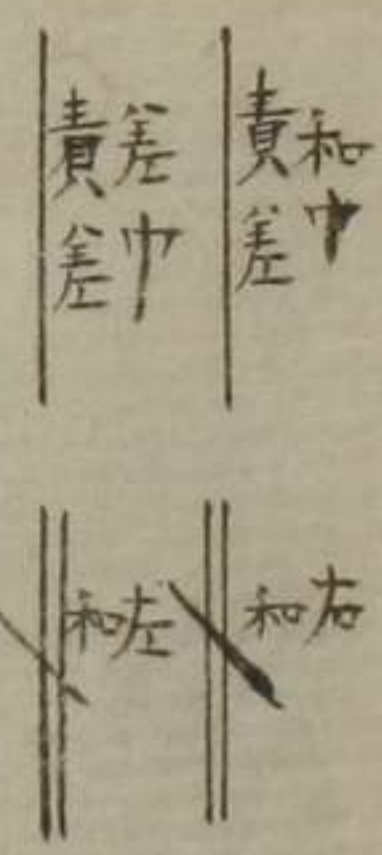 和巾
責差
差巾
責差
右
和
左
和